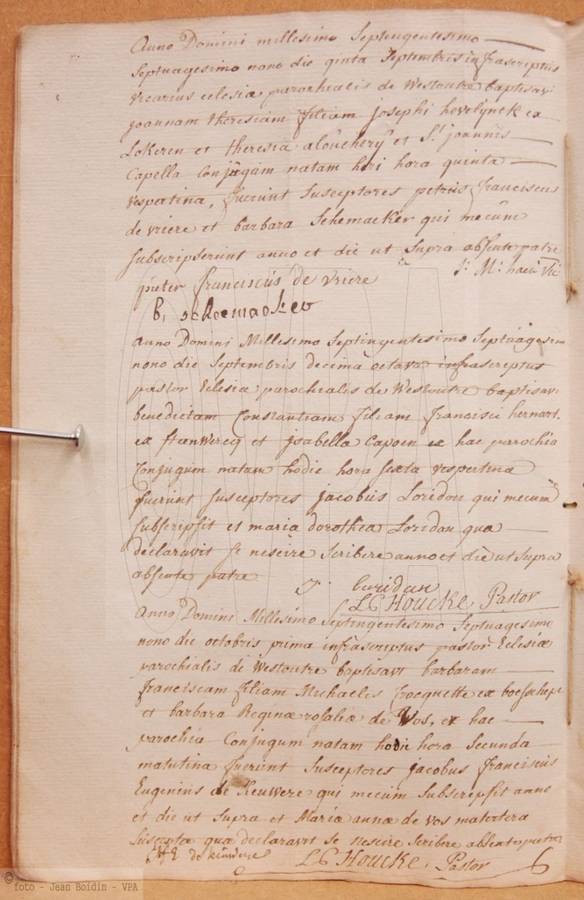 Anno Domini millesimo Septengentesimo
Septuagesimo nono die quinta Septembris infrascriptus
vicarius eclesiæ parochialis de Westoutre baptisavi
joannam theresiam filiam josephi hevelynck ex
Lokeren et theresiæ alouchery et St joannis
Capella Conjugum natam heri hora quinta
vespertina, fuerunt Susceptores petrus franciscus
de vriere et barbara Schemacker qui mecum
Subscripserunt anno et die ut Supra absente patre
pieter franciscus de vriere
B, schoemacker
Anno Domini Millesimo Septingentesimo Septuagesimo
nono die Septembris decima octava infrascriptus
pastor Eclesiæ parochialis de Westoutre baptisavi
benedictam Constantiam filiam francisci hennart
ex et jsabella Capoen ex hac parrochia
Conjugum natam hodie hora sexta vespertina
fuerunt Susceptores jacobus Loridou qui mecum
Subscripsit et maria dorothea Loridau qua
declaravit se nescire Scribere anno et die ut Supra
absente patre J. Luridan
LC Houcke Pastor
Anno Domini Millesimo Septingentesimo Septuagesimo
nono die octobris prima infrascriptus pastor Eclesiæ
parochialis de Westoutre baptisavi barbaram
franciscam filiam Michaelis ex
et barbara Reginæ rosaliæ de Vos, ex hac
parochia Conjugum natam hodie hora Secunda
matutina fuerunt Susceptores jacobus franciscus
Eugenius de qui mecum Subscripsit anno
et die ut Supra et Maria anna de vos matertera
Suscepta qua declaravit se nescire Scribere absente patre
LC Houcke. Pastor
© foto - Jean Boidin - VPA